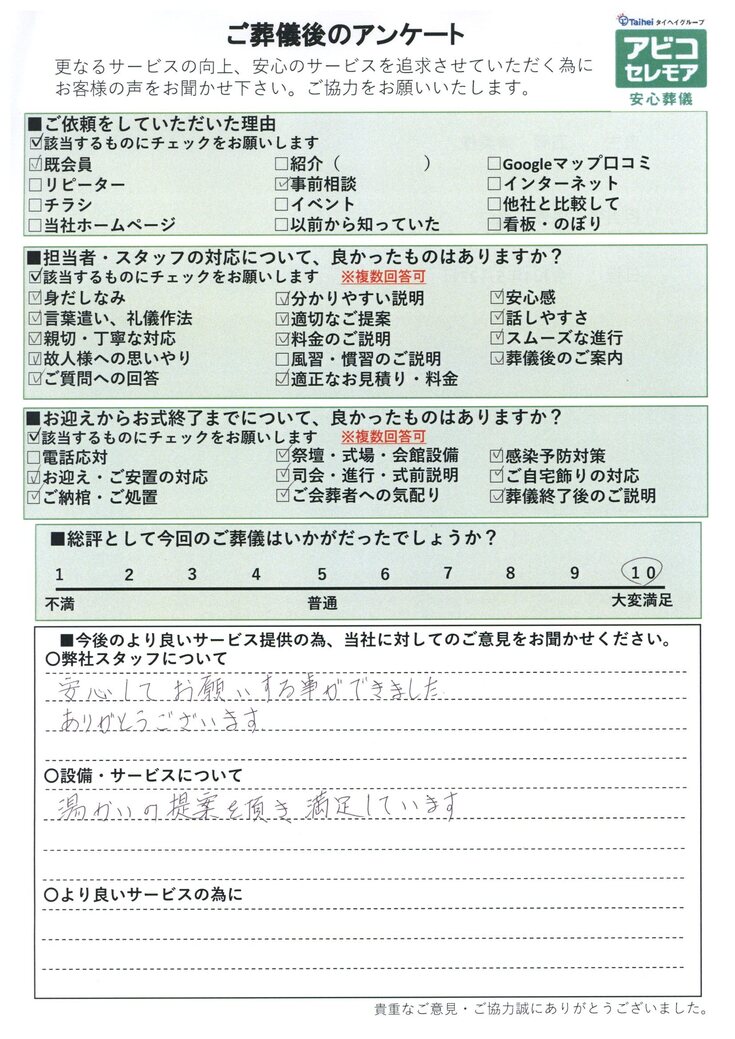 ご葬儀後のアンケート
Taihei タイヘイグループ
アビコ
セレモア
安心葬儀
更なるサービスの向上、安心のサービスを追求させていただく為に
お客様の声をお聞かせ下さい。ご協力をお願いいたします。
■ご依頼をしていただいた理由
☑該当するものにチェックをお願いします
☑既会員 □紹介（ ） □Googleマップ口コミ
□リピーター ☑事前相談 □インターネット
□チラシ □イベント □他社と比較して
□当社ホームページ □以前から知っていた □看板・のぼり
■担当者・スタッフの対応について、良かったものはありますか？
☑該当するものにチェックをお願いします ※複数回答可
☑身だしなみ ☑分かりやすい説明 ☑安心感
☑言葉遣い、礼儀作法 ☑適切なご提案 ☑話しやすさ
☑親切・丁寧な対応 ☑料金のご説明 ☑スムーズな進行
☑故人様への思いやり □風習・慣習のご説明 ☑葬儀後のご案内
☑ご質問への回答 ☑適正なお見積り・料金
■お迎えからお式終了までについて、良かったものはありますか？
☑該当するものにチェックをお願いします ※複数回答可
□電話応対 ☑祭壇・式場・会館設備 ☑感染予防対策
☑お迎え・ご安置の対応 ☑司会・進行・式前説明 ☑ご自宅飾りの対応
☑ご納棺・ご処置 ☑ご会葬者への気配り ☑葬儀終了後のご説明
■総評として今回のご葬儀はいかがだったでしょうか？
1 2 3 4 5 6 7 8 9 10
不満 普通 大変満足
■今後のより良いサービス提供の為、当社に対してのご意見をお聞かせください。
〇弊社スタッフについて
安心してお願いする事ができました
ありがとうございます
〇設備・サービスについて
湯かんの提案を頂き満足しています
〇より良いサービスの為に
貴重なご意見・ご協力誠にありがとうございました。